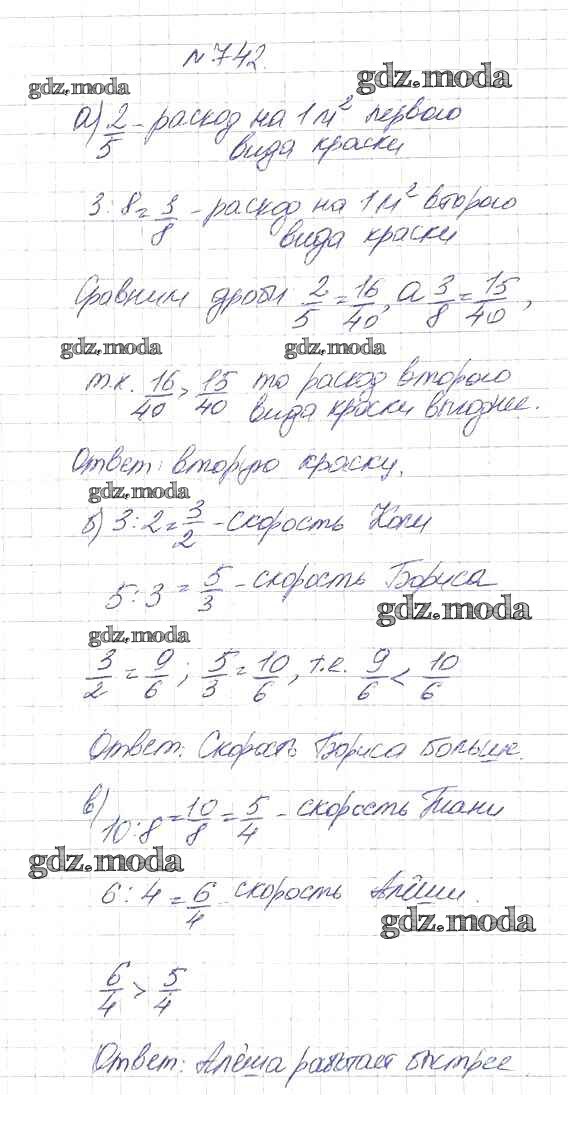 № 742.
gdz.moda gdz.moda
а) 2/5 - расход на 1 м² первого
вида краски
3 : 8 = 3/8 - расход на 1 м² второго
вида краски
Сравним дроби 2/5 = 16/40, а 3/8 = 15/40,
gdz.moda gdz.moda
т.к. 16/40 > 15/40 то расход второго
вида краски выгоднее.
Ответ: вторую краску.
gdz.moda
б) 3 : 2 = 3/2 - скорость Коли
5 : 3 = 5/3 - скорость Бориса
gdz.moda
gdz.moda
3/2 = 9/6 ; 5/3 = 10/6, т.е. 9/6 < 10/6
Ответ: Скорость Бориса больше.
в) 10 : 8 = 10/8 = 5/4 - скорость Тани
gdz.moda
6 : 4 = 6/4 скорость Алёши.
gdz.moda
6/4 > 5/4
Ответ: Алёша работает быстрее